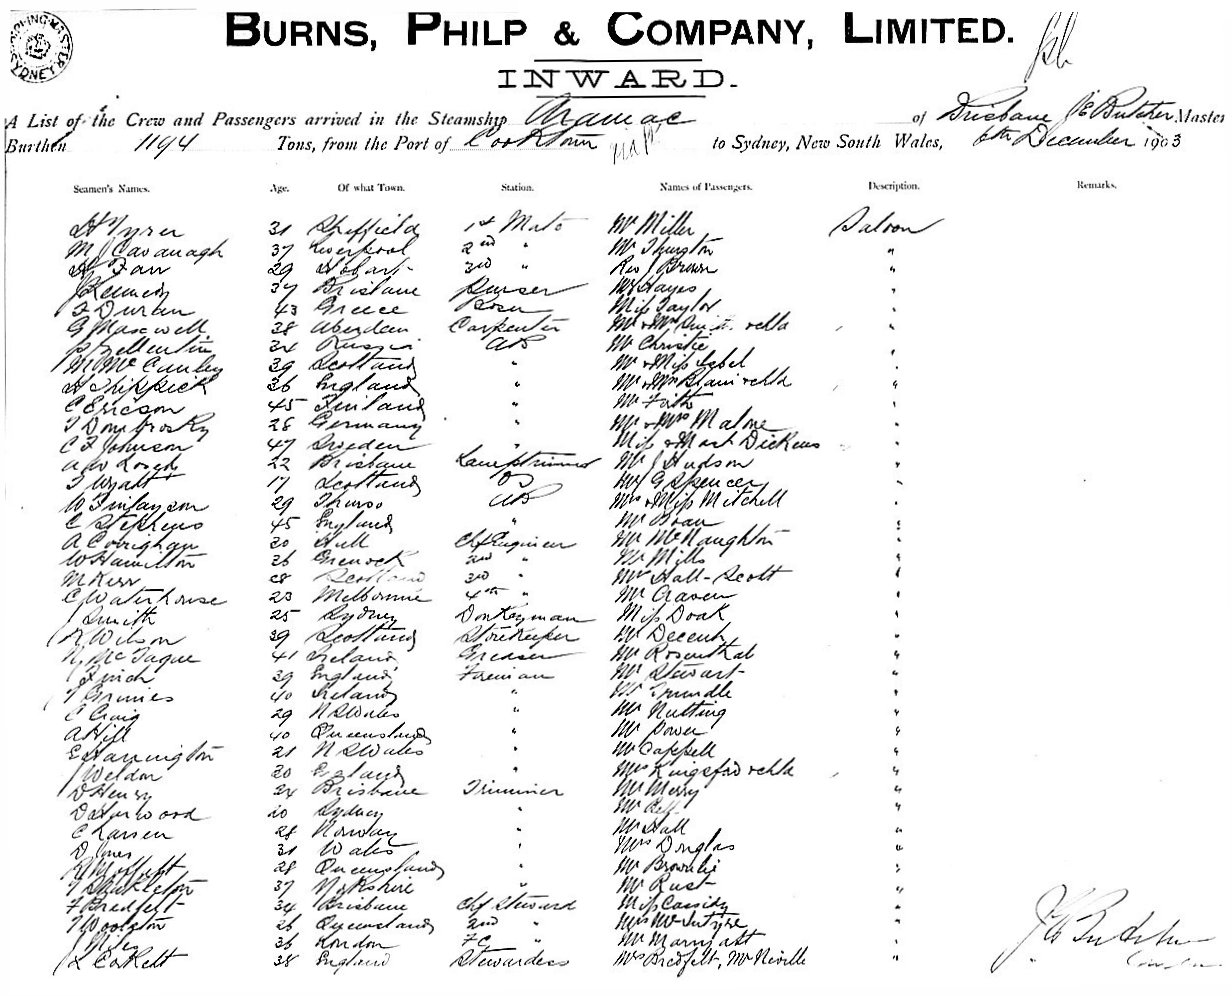 BURNS, PHILP & COMPANY, LIMITED.
INWARD.
A List of the Crew and Passengers arrived in the Steamship Aramac of Brisbane J E Butcher Master
Burthen 1194 Tons, from the Port of Cooktown to Sydney, New South Wales, 6th December 1903
Seamen's Names. Age. Of what Town. Station. Names of Passengers. Description. Remarks.
H Tyrer 31 Sheffield 1st Mate Mr Miller Saloon
M J Cavanagh 37 Liverpool 2nd " Mr Thurston "
H Farr 29 Hobart 3rd " Rev J Brown "
J Kennedy 37 Brisbane Purser Hayes "
Duran 43 Greece Bosn Miss Taylor "
G Maxwell 38 Aberdeen Carpenter Mr & Mrs "
34 Russia AB Mr Christie "
M McCauley 39 Scotland " Mr & Miss Isbel "
H Skippick 36 England " Mr & Mrs "
C Ericson 45 Finland " Mr Frith "
T Dombrosky 28 Germany " Mr & Mrs Malone "
C F Johnson 47 Sweden " Miss & Mast Dickens "
A W 22 Brisbane Lamptrimmer Mr J Hudson "
T Wyatt 17 Scotland OS G Spencer "
W Finlayson 29 Thurso AB Mrs & Miss Mitchell "
C Stephens 45 England " Mr "
A Corrighan 30 Hull Chf Engineer Mr McNaughton "
W Hamilton 36 Greenock 2nd " Mr Mills "
N Kerr 28 Scotland 3rd " Mr Hall-Scott "
C Waterhouse 23 Melbourne 4th " Mr Craven "
J Smith 25 Sydney Donkeyman Miss Doak "
R Wilson 39 Scotland Storekeeper Mr Decent "
N McTague 41 Ireland Greaser Mr Rosenthal "
J Finch 39 England Fireman Mr Stewart "
T Grimes 40 Ireland " Mr Grundle "
C Craig 29 N S Wales " Mr Nutting "
A Hill 40 Queensland " Mr Power "
E Harrington 21 N S Wales " Mr Cappell "
J Weldon 30 England " Mrs Kingsford & chld "
D Henry 24 Brisbane Trimmer Mr Merry "
D Harwood 20 Sydney " Mr "
C Larsen 28 Norway " Mr Hall "
D Jones 31 Wales " Mrs Douglas "
Moffatt 28 Queensland " Mr Brownlie "
T Shakleton 37 Yorkshire " Mr Rust "
F Bredfelt 34 Brisbane Chf Steward Miss Cassidy "
T Woolston 26 Queensland 2nd " Mrs McIntyre "
J Niles 36 London FC " Mr Marryatt "
L Corkett 38 England Stewardess Mrs Bredfelt, Mr Neville "
J E Butcher